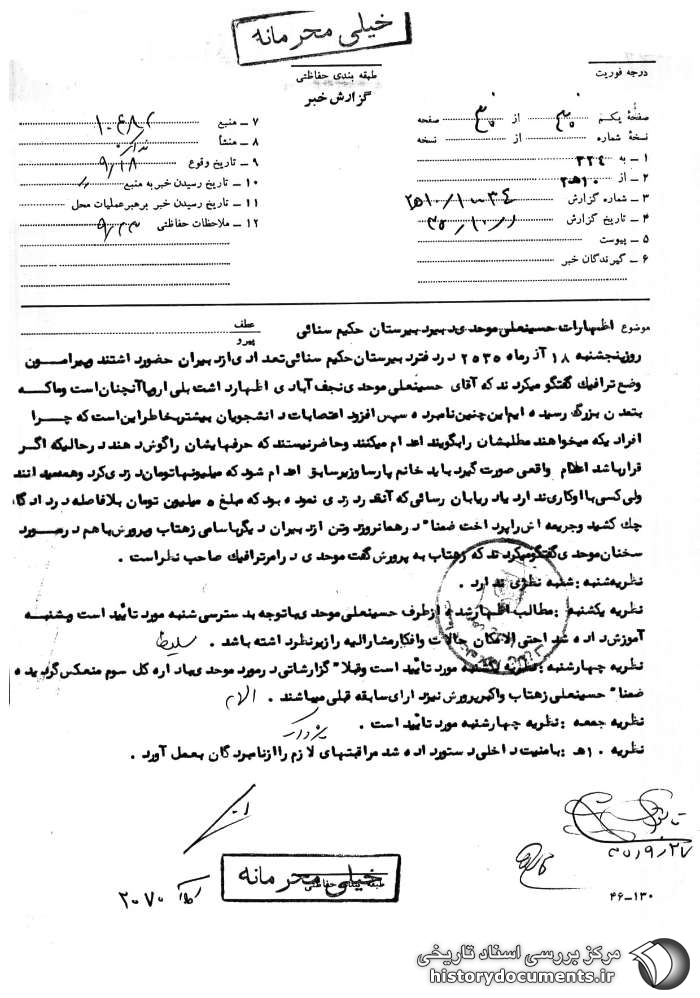 خیلی محرمانه
طبقه بندی حفاظتی
گزارش خبر
درجه فوریت
صفحهٔ یکم از صفحه
نسخهٔ شماره از نسخه
۱ ــ به ۳۳۴
۲ ــ از ۱۰هـ۲
۳ ــ شماره گزارش
۴ ــ تاریخ گزارش
۵ ــ پیوست
۶ ــ گیرندگان خبر
۷ ــ منبع
۸ ــ منشأ ندارد
۹ ــ تاریخ وقوع ۹/۱۸
۱۰ ــ تاریخ رسیدن خبر به منبع
۱۱ ــ تاریخ رسیدن خبر برهبر عملیات محل
۱۲ ــ ملاحظات حفاظتی
موضوع اظهارات حسینعلی موحدی دبیر دبیرستان حکیم سنائی
عطف
پیرو
روزپنجشنبه ۱۸ آذر ماه ۲۵۳۵ در دفتر دبیرستان حکیم سنائی تعدادی از دبیران حضور داشتند و پیرامون
وضع ترافیک گفتگو میکردند که آقای حسینعلی موحدی نجف آبادی اظهار داشت بلی اروپا آنچنان است و ما که
بتمدن بزرگ رسیده ایم این چنین نامبرده سپس افزود اعتصابات دانشجویان بیشتر بخاطر این است که چرا
افرادیکه میخواهند مطلبشان را بگویند اعدام میکنند و حاضر نیستند که حرفهایشان را گوش دهند در حالیکه اگر
قرار باشد اعدام واقعی صورت گیرد باید خانم پارسا وزیر سابق اعدام شود که میلیونها تومان دزدی کرد و همه میدانند
ولی کسی با او کاری ندارد یا دریابان رسائی که آنقدر دزدی نموده بود که مبلغ ۵ میلیون تومان بلافاصله در دادگاه
چک کشید و جریمه اش را پرداخت ضمنا" در همانروز دو تن از دبیران دیگر باسامی زهتاب و پرورش باهم در مورد
سخنان موحدی گفتگو میکردند که زهتاب به پرورش گفت موحدی در امر ترافیک صاحب نظر است .
نظریه شنبه : شنبه نظری ندارد .
نظریه یکشنبه : مطالب اظهار شده از طرف حسینعلی موحدی با توجه بدسترسی شنبه مورد تأیید است و بشنبه
آموزش داده شد حتی الامکان حالات و افکار مشارالیه را زیر نظر داشته باشد . سلیطا
نظریه چهارشنبه : نظریه یکشنبه مورد تأیید است و قبلا" گزارشاتی در مورد موحدی باداره کل سوم منعکس گردیده
ضمنا" حسینعلی زهتاب و اکبر پرورش نیز دارای سابقه قبلی میباشند . الهام
نظریه جمعه : نظریه چهارشنبه مورد تأیید است .
نظریه ۱۰هـ : بامنیت داخلی دستور داده شد مراقبتهای لازم را از نامبردگان بعمل آورد .
خیلی محرمانه
طبقه بندی حفاظتی
۲۰۷۰
۴۶-۱۳۰
مرکز بررسی اسناد تاریخی
historydocuments.ir